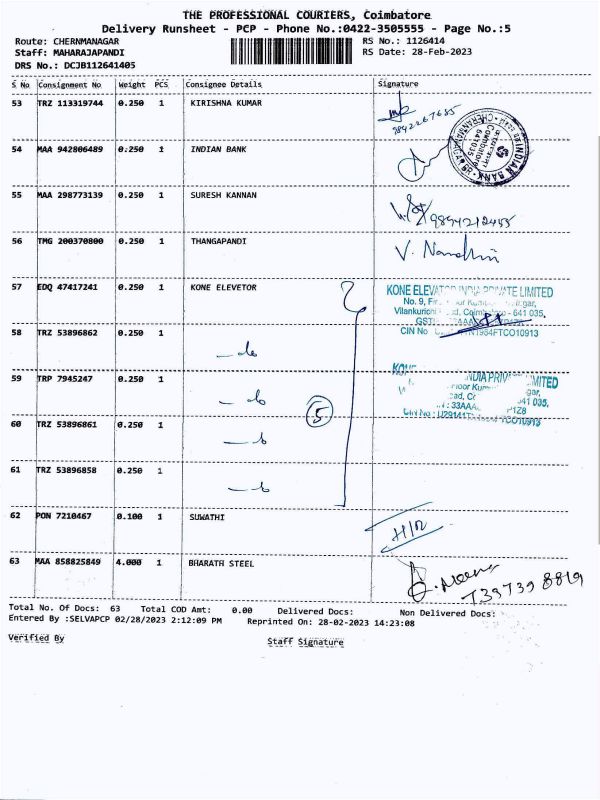 THE PROFESSIONAL COURIERS, Coimbatore
Delivery Runsheet - PCP - Phone No.:0422-3505555 - Page No.:5
Route: CHERNMANAGAR RS No.: 1126414
Staff: MAHARAJAPANDI RS Date: 28-Feb-2023
DRS No.: DCJB112641405
S No Consignment No Weight PCS Consignee Details Signature
53 TRZ 113319744 0.250 1 KIRISHNA KUMAR
9842267685
54 MAA 942806489 0.250 1 INDIAN BANK
INDIAN BANK
Coimbatore
641035
55 MAA 298773139 0.250 1 SURESH KANNAN
9894212455
56 TMG 200370800 0.250 1 THANGAPANDI
V. Nandhini
57 EDQ 47417241 0.250 1 KONE ELEVETOR
KONE ELEVATOR INDIA PRIVATE LIMITED
No. 9,
Vilankurichi Coimbatore - 641 035.
CIN No
58 TRZ 53896862 0.250 1
— do
59 TRP 7945247 0.250 1
INDIA PRIVATE LIMITED
641 035.
CIN No : U29141T
— do
5
60 TRZ 53896861 0.250 1
— do
61 TRZ 53896858 0.250 1
— do
62 PON 7210467 0.100 1 SUWATHI
63 MAA 858825849 4.000 1 BHARATH STEEL
7397398819
Total No. Of Docs: 63 Total COD Amt: 0.00 Delivered Docs: Non Delivered Docs:
Entered By :SELVAPCP 02/28/2023 2:12:09 PM Reprinted On: 28-02-2023 14:23:08
Verified By Staff Signature